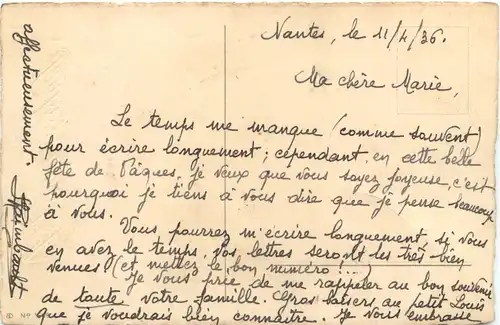 Nantes, le 11/4/36.
Ma chère Marie,
Le temps me manque (comme souvent)
pour écrire longuement; cependant, en cette belle
fête de Pâques, je veux que vous soyez joyeuse, c'est
pourquoi je tiens à vous dire que je pense beaucoup
à vous.
Vous pourrez m'écrire longuement, si vous
en avez le temps, vos lettres seront les très bien
venues (et mettez le bon numéro!...)
Je vous prie de me rappeler au bon souvenir
de toute votre famille. Gros baisers au petit Louis
que je voudrais bien connaître. Je vous embrasse
affectueusement.